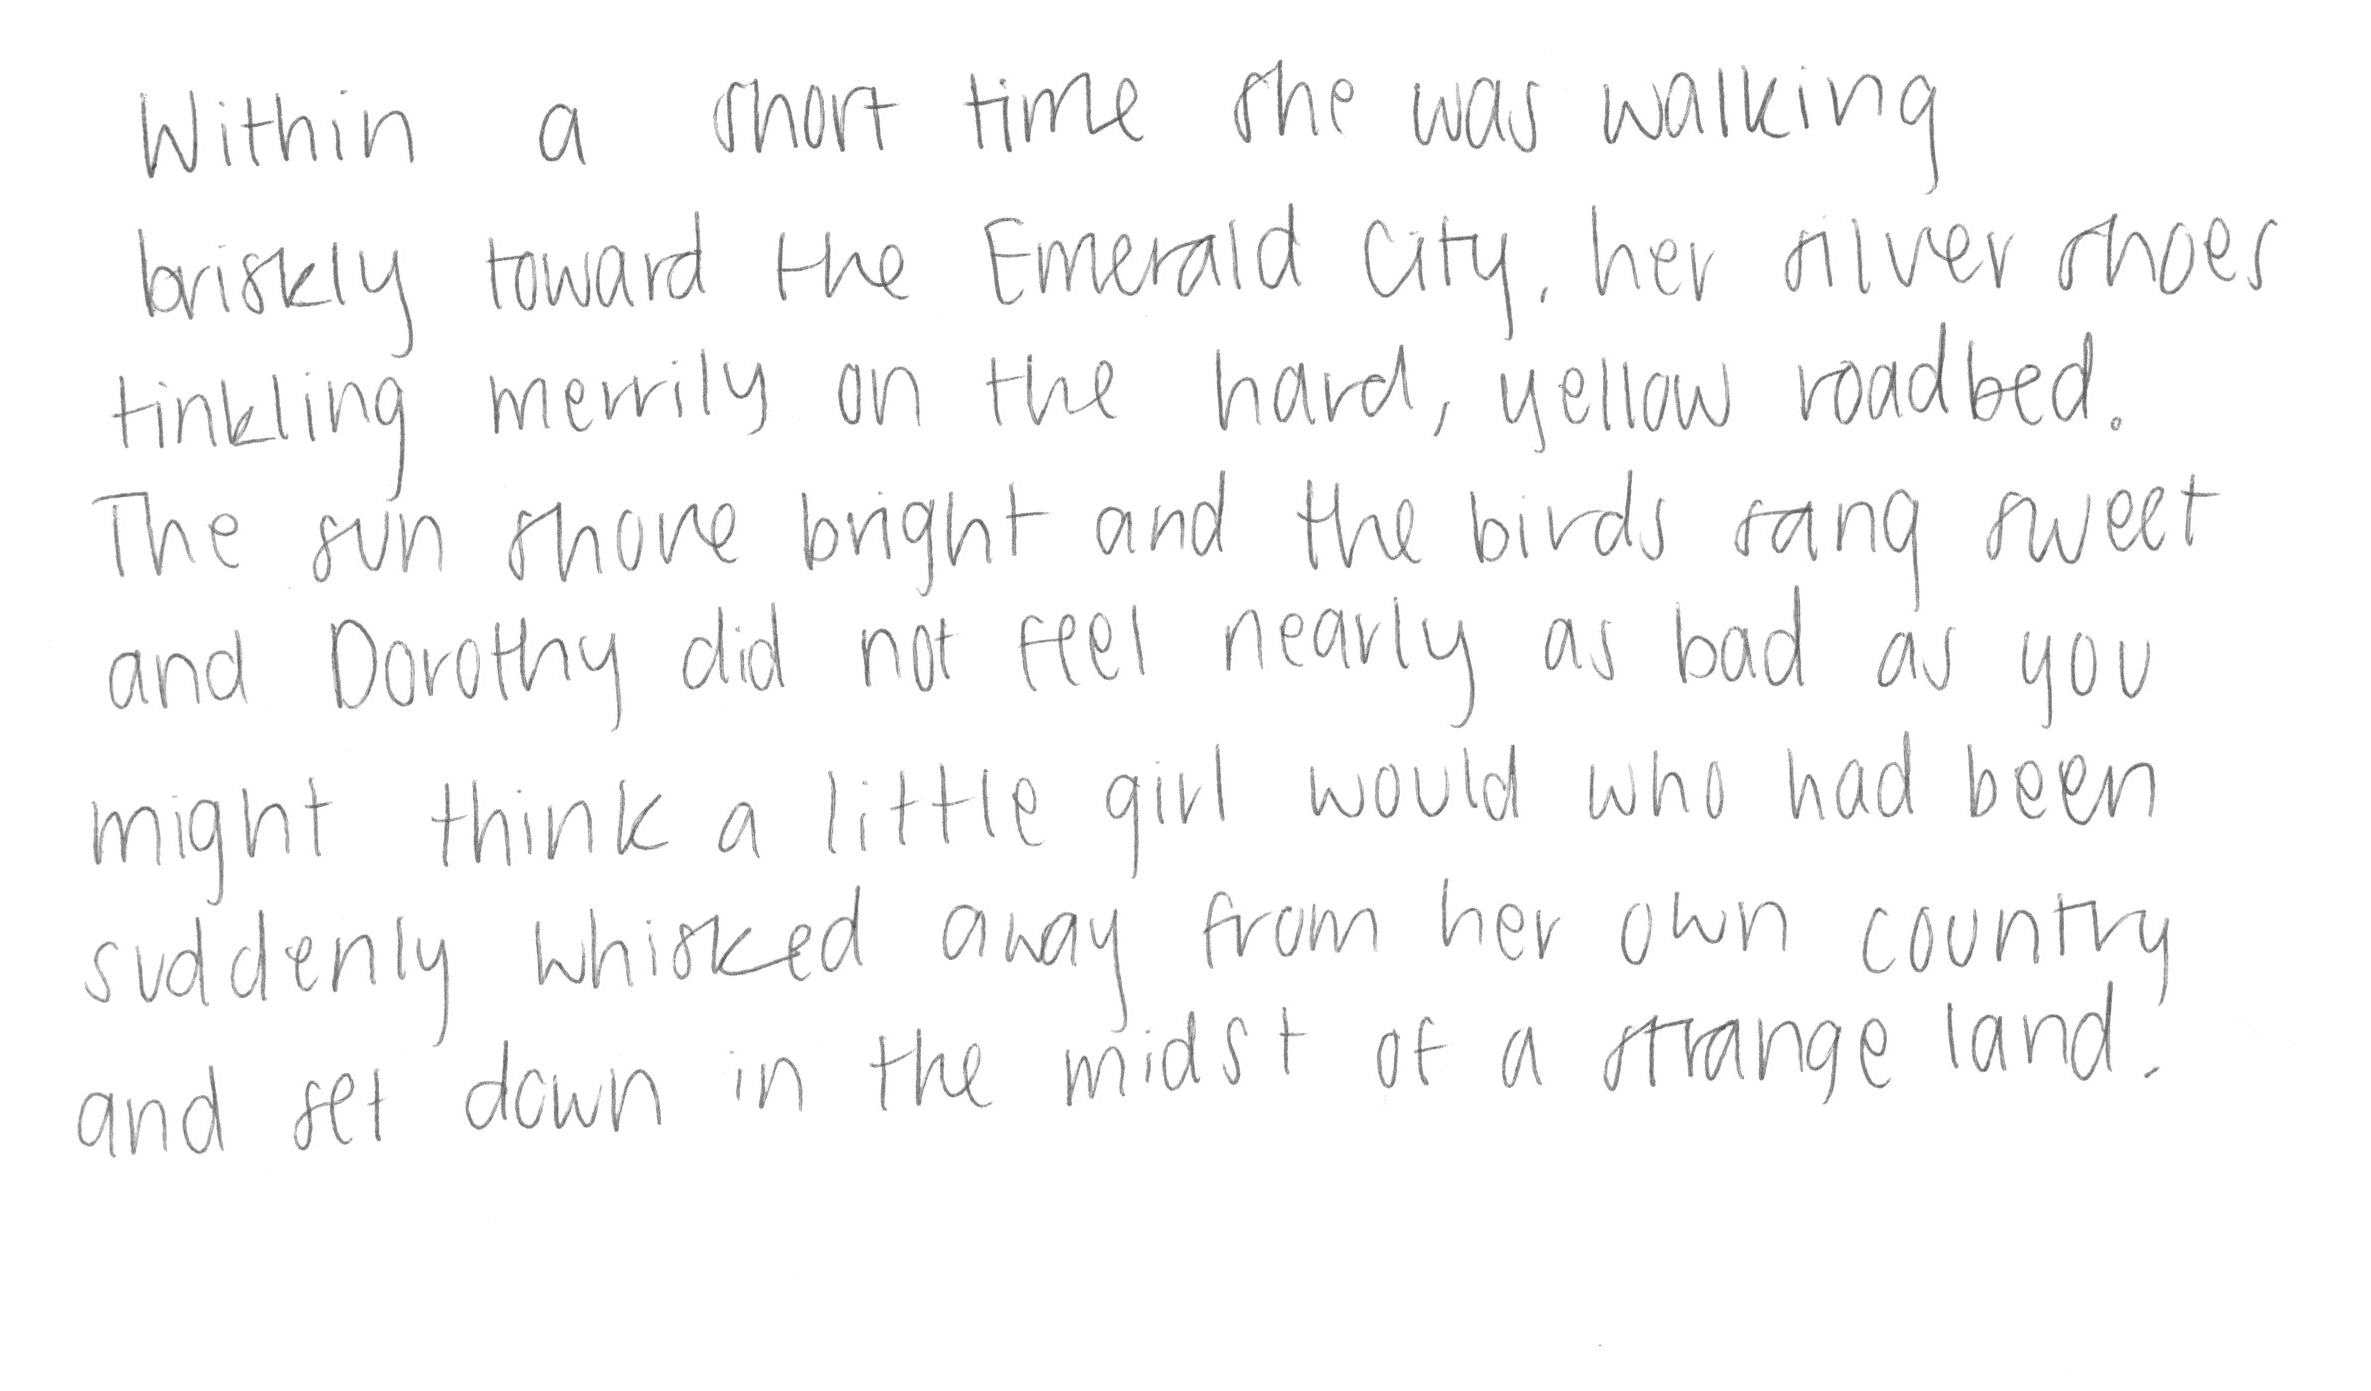 Within a short time she was walking
briskly toward the Emerald City, her silver shoes
tinkling merrily on the hard, yellow roadbed.
The sun shone bright and the birds sang sweet
and Dorothy did not feel nearly as bad as you
might think a little girl would who had been
suddenly whisked away from her own country
and set down in the midst of a strange land.